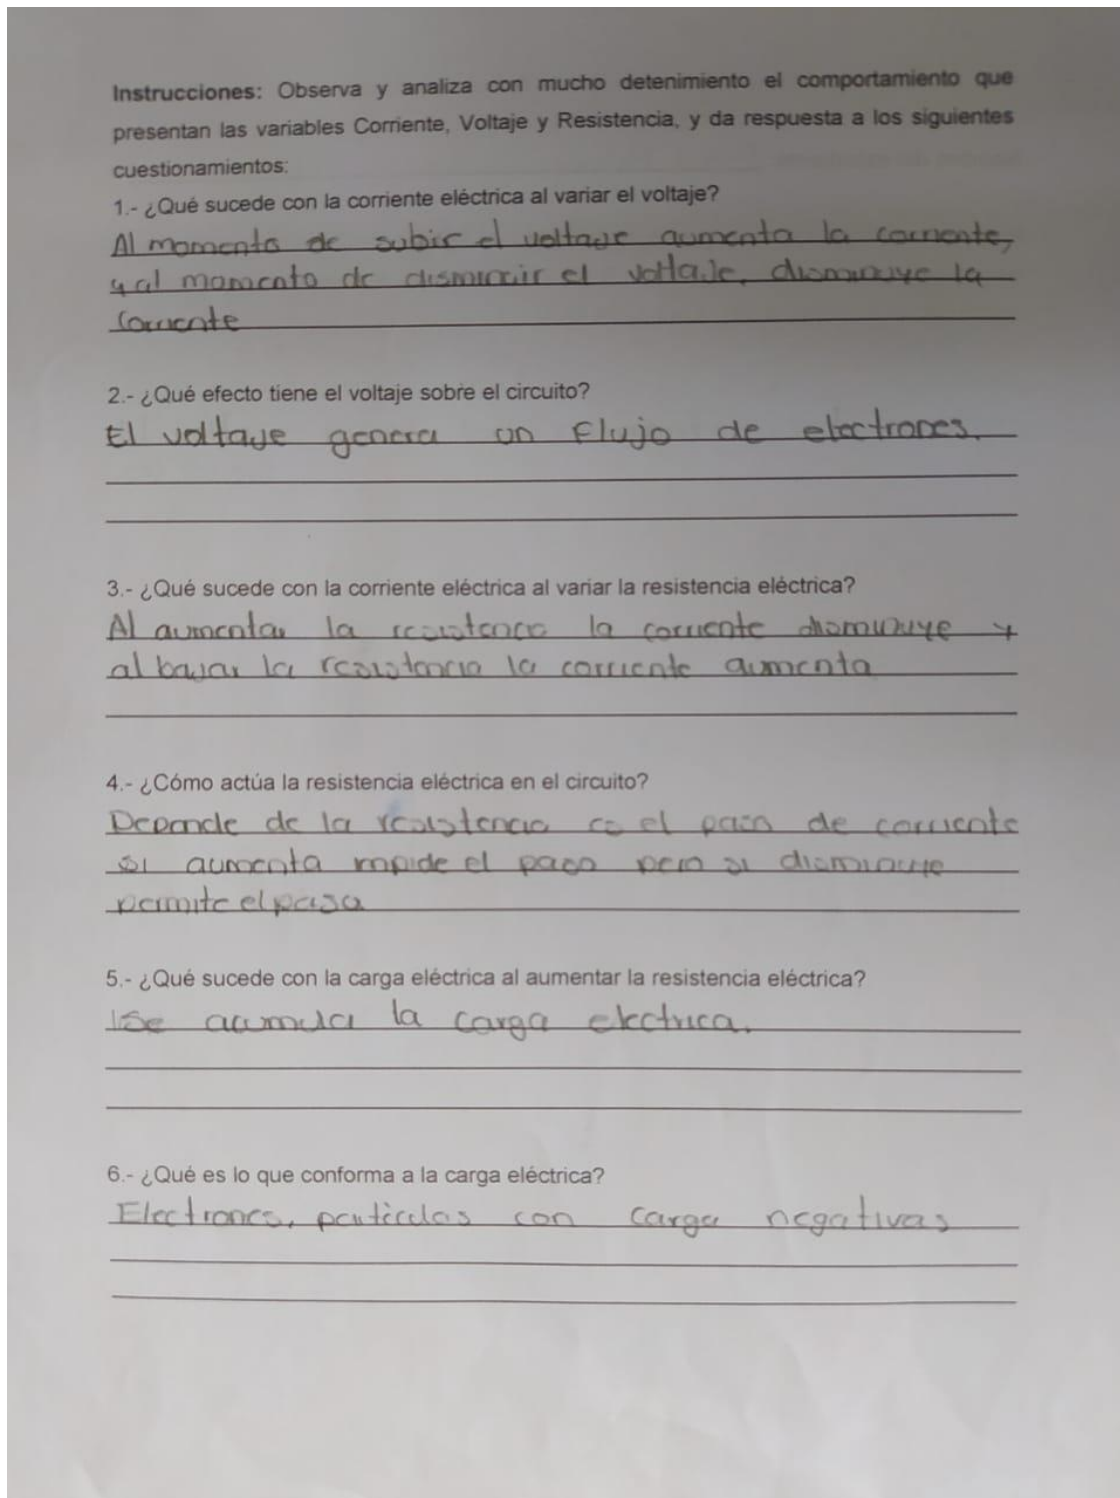 Instrucciones: Observa y analiza con mucho detenimiento el comportamiento que
presentan las variables Corriente, Voltaje y Resistencia, y da respuesta a los siguientes
cuestionamientos:
1.- ¿Qué sucede con la corriente eléctrica al variar el voltaje?
Al momento de subir el voltaje aumenta la corriente,
y al momento de disminuir el voltaje, disminuye la
corriente
2.- ¿Qué efecto tiene el voltaje sobre el circuito?
El voltaje genera un flujo de electrones.
3.- ¿Qué sucede con la corriente eléctrica al variar la resistencia eléctrica?
Al aumentar la resistencia la corriente disminuye y
al bajar la resistencia la corriente aumenta
4.- ¿Cómo actúa la resistencia eléctrica en el circuito?
Depende de la resistencia es el paso de corriente
si aumenta impide el paso pero si disminuye
permite el pasa
5.- ¿Qué sucede con la carga eléctrica al aumentar la resistencia eléctrica?
Se acumula la carga electrica.
6.- ¿Qué es lo que conforma a la carga eléctrica?
Electrones, particulas con carga negativas